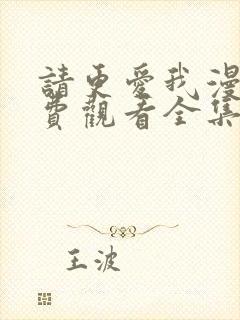 請更愛我漫
費觀看全集
王波